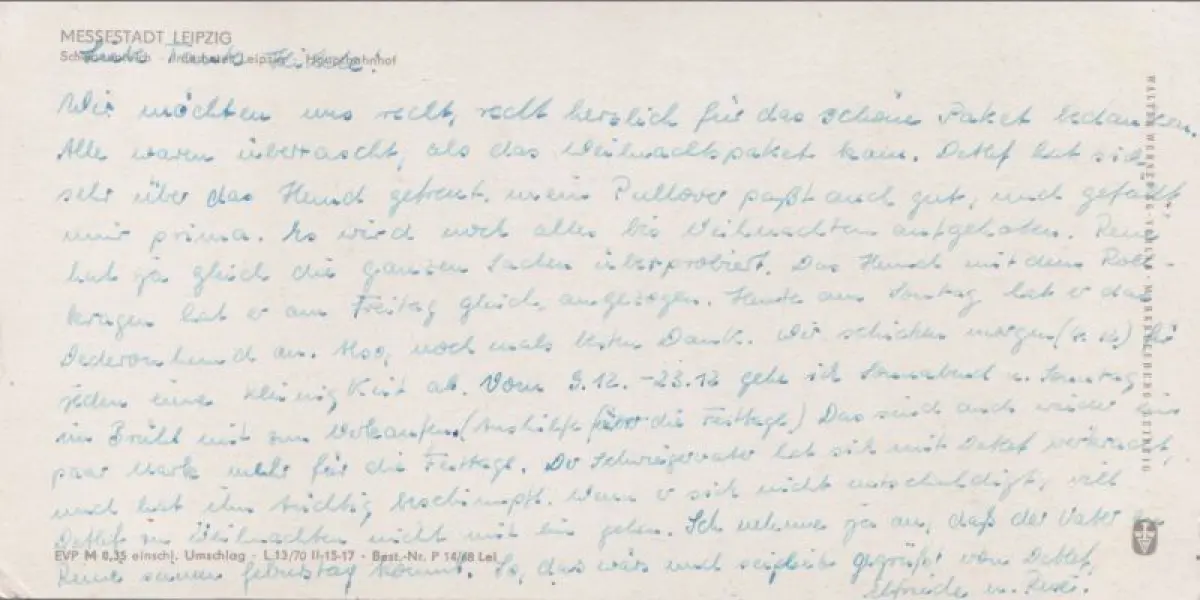 MESSESTADT LEIPZIG
Liebe Tante Hilde!
Hauptbahnhof
Wir möchten uns recht, recht herzlich für das schöne Paket bedanken.
Alle waren überrascht, als das Weihnachtspaket kam. Detlef hat sich
sehr über das Hemd gefreut. mein Pullover paßt auch gut, und gefällt
mir prima. Es wird noch alles bis Weihnachten aufgehoben. René
hat ja gleich die ganzen Sachen überprobiert. Das Hemd mit dem Roll-
kragen hat er am Freitag gleich angezogen. Heute am Sonntag hat er das
Dederonhemd an. Also, noch mals besten Dank. Wir schicken morgen
jeden eine Kleinigkeit ab. Vom 9.12.-23.12 gehe ich Sonnabend u. Sonntag
im Brühl mit zum Verkaufen (Aushilfe für die Festtage) Das sind auch wieder ein
paar Mark mehr für die Festtage. Der Schwiegervater hat sich mit Detlef verkracht,
und hat ihn tüchtig beschimpft. Wenn er sich nicht entschuldigt, will
Detlef zu Weihnachten nicht mit hin gehen. Ich nehme ja an, daß der Vater zu
EVP M 0,35 einschl. Umschlag · L 13/70 II-15-17 · Best.-Nr. P 14/68 Lei
René seinen Geburtstag kommt. So, das wärs und seid gegrüßt von Detlef,
Elfriede u. René.